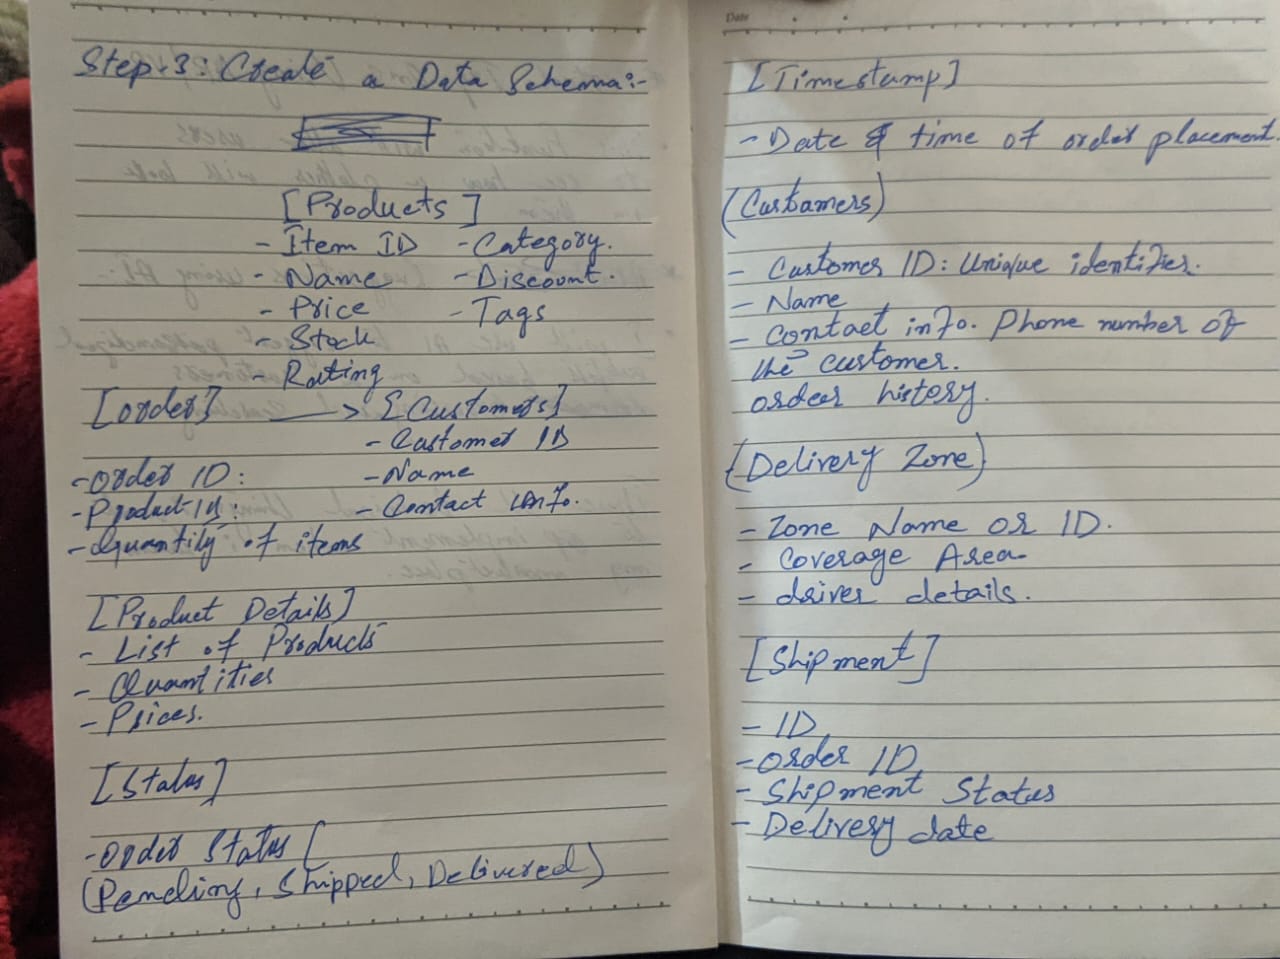 Step.3: Create a Data Schema:-
[Products]
- Item ID - Category.
- Name - Discount.
- Price - Tags
- Stock
- Rating
[order] → [Customers]
- Customer ID
- Order ID: - Name
- Product Id: - Contact info.
- Quantity of items
[Product Details]
- List of Products
- Quantities
- Prices.
[Status]
- Order Status (
(Pending, Shipped, Delivered)
Date
[Timestamp]
- Date & time of order placement.
(Customers)
- Customer ID: Unique identifier.
- Name
- Contact info. Phone number of
the customer.
order history.
(Delivery Zone)
- Zone Name or ID.
- Coverage Area
- driver details.
[Shipment]
- ID
- Order ID
- Shipment Status
- Delivery date